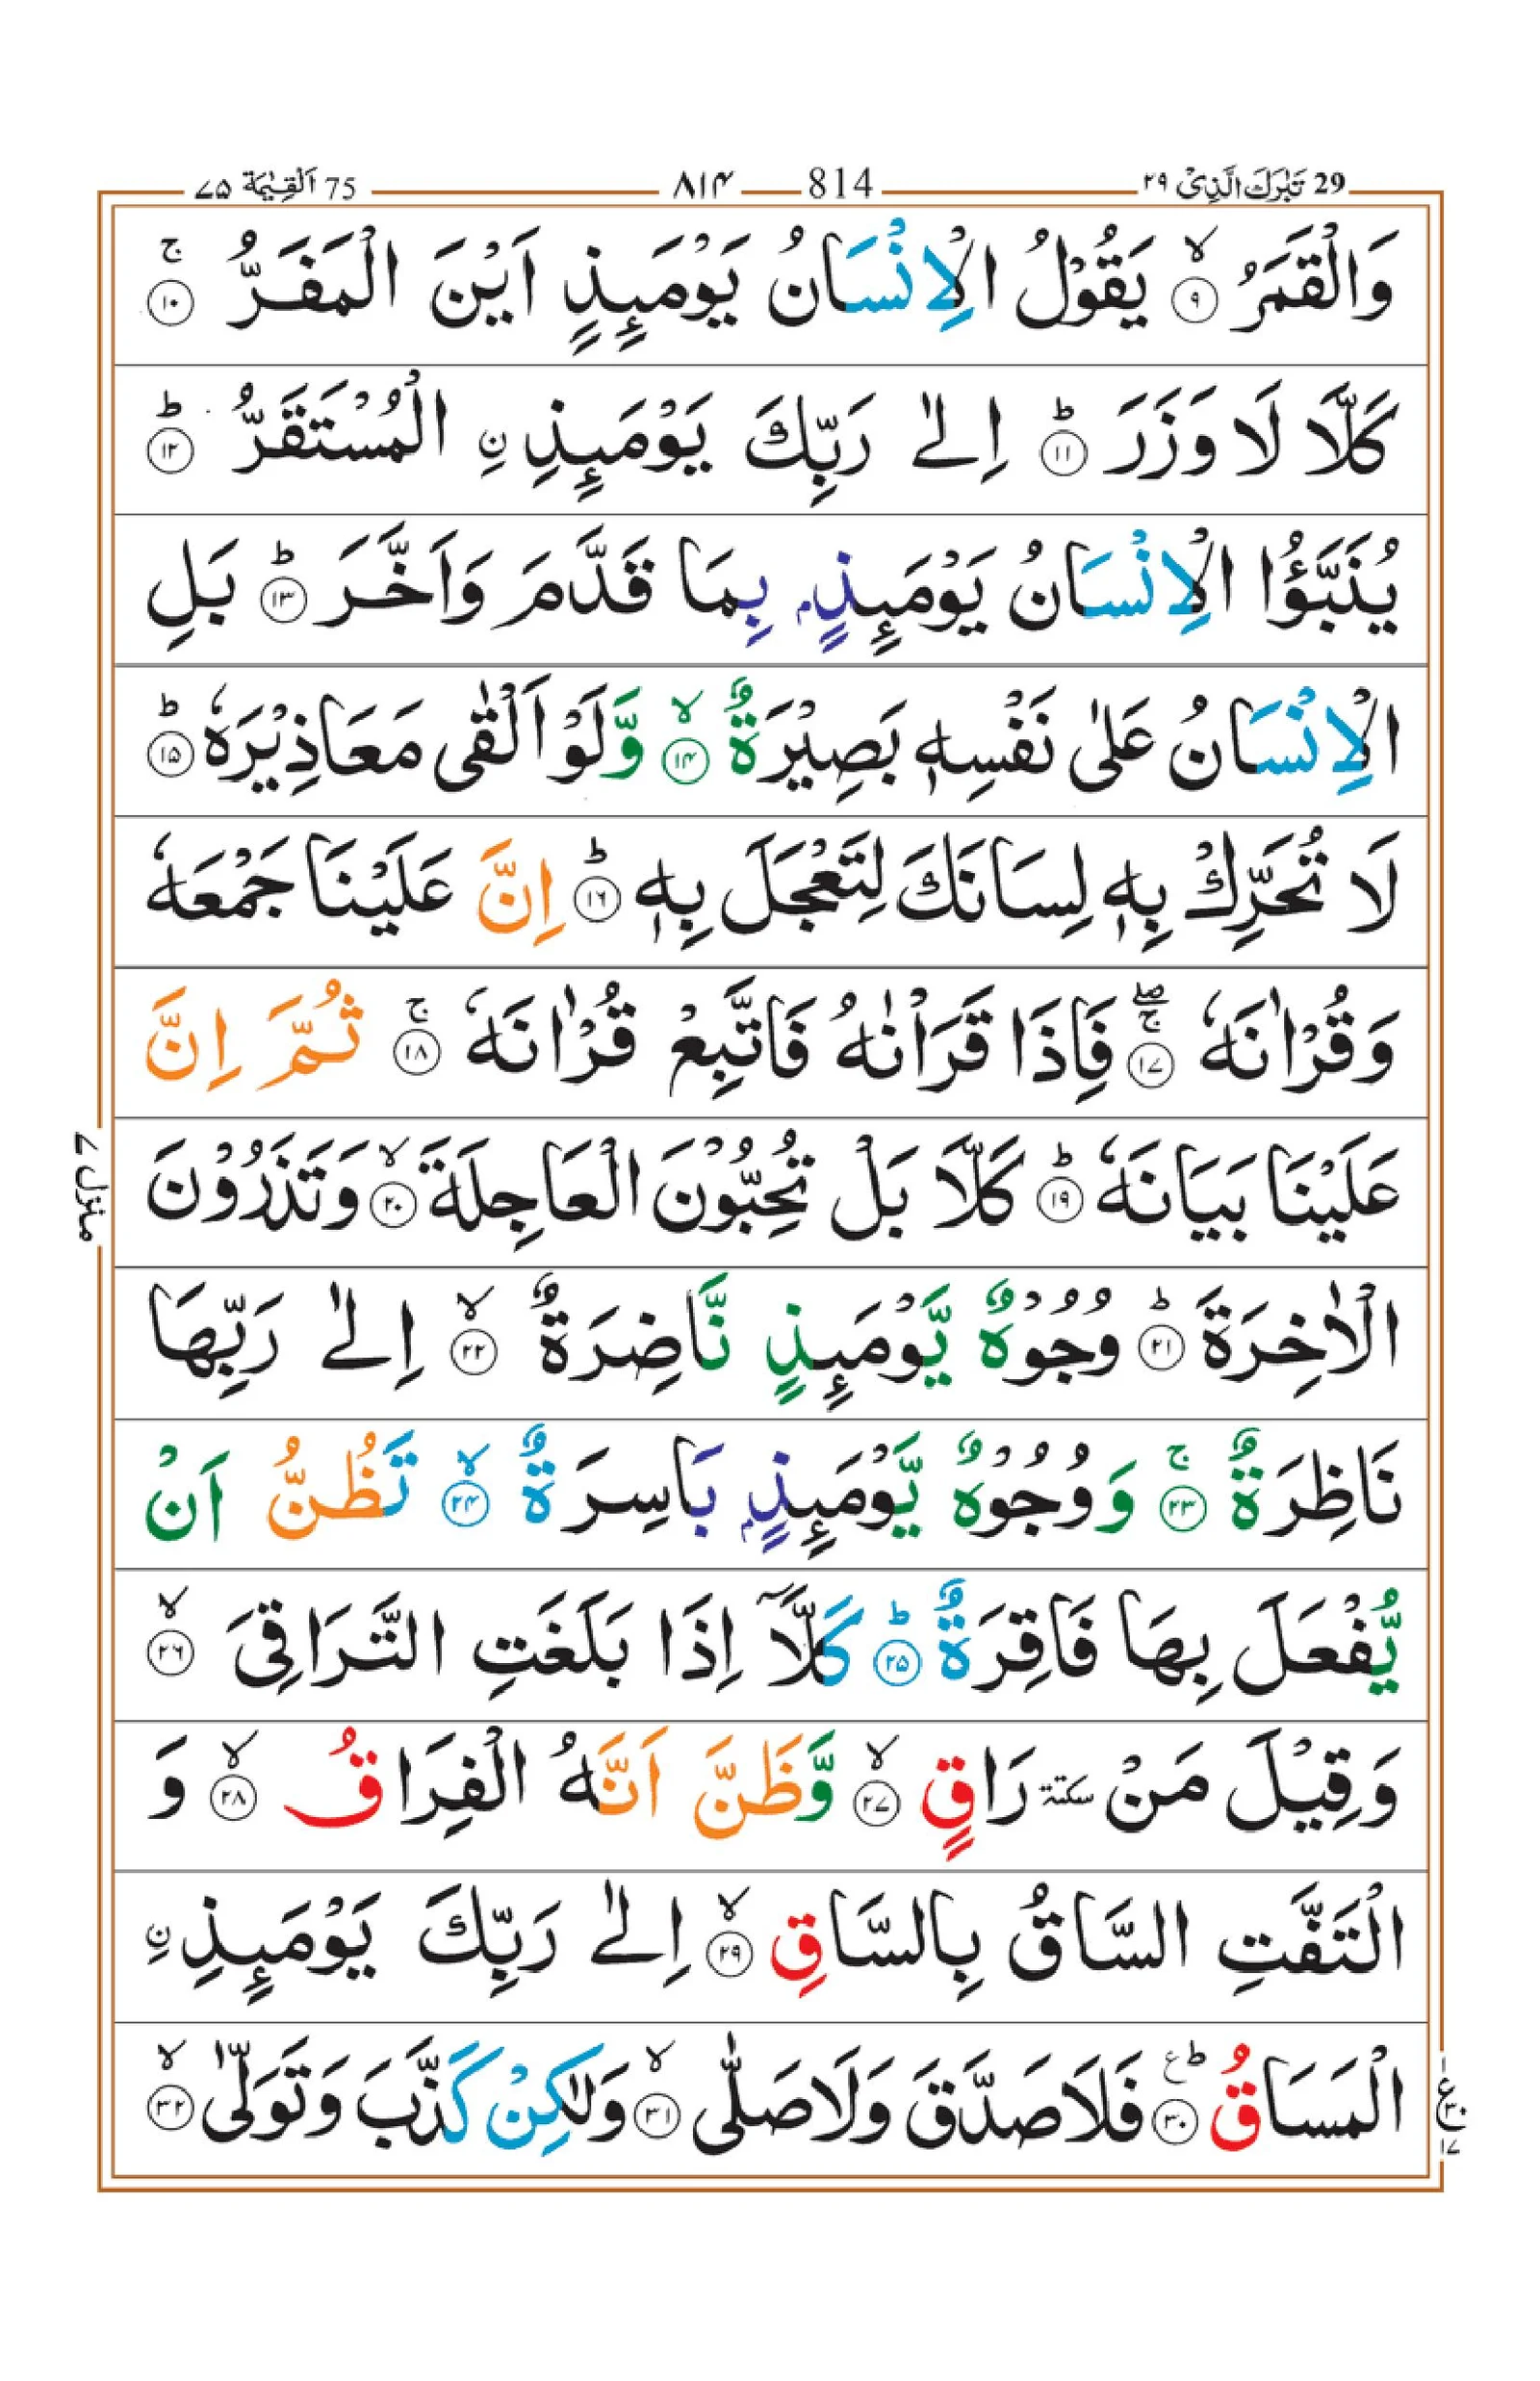 29 تَبٰرَكَ الَّذِیْ ۲۹ 814 ۸۱۴ 75 اَلْقِیٰمَة ۷۵
وَالْقَمَرُ ۙ﴿۹﴾ یَقُوْلُ الْاِنْسَانُ یَوْمَىِٕذٍ اَیْنَ الْمَفَرُّ ۚ﴿۱۰﴾
كَلَّا لَا وَزَرَ ؕ﴿۱۱﴾ اِلٰی رَبِّكَ یَوْمَىِٕذِ ِ۟الْمُسْتَقَرُّ ؕ﴿۱۲﴾
یُنَبَّؤُا الْاِنْسَانُ یَوْمَىِٕذٍۭ بِمَا قَدَّمَ وَاَخَّرَ ؕ﴿۱۳﴾ بَلِ
الْاِنْسَانُ عَلٰی نَفْسِهٖ بَصِیْرَةٌ ۙ﴿۱۴﴾ وَّلَوْ اَلْقٰی مَعَاذِیْرَهٗ ؕ﴿۱۵﴾
لَا تُحَرِّكْ بِهٖ لِسَانَكَ لِتَعْجَلَ بِهٖ ؕ﴿۱۶﴾ اِنَّ عَلَیْنَا جَمْعَهٗ
وَقُرْاٰنَهٗ ۖۚ﴿۱۷﴾ فَاِذَا قَرَاْنٰهُ فَاتَّبِعْ قُرْاٰنَهٗ ۚ﴿۱۸﴾ ثُمَّ اِنَّ
عَلَیْنَا بَیَانَهٗ ؕ﴿۱۹﴾ كَلَّا بَلْ تُحِبُّوْنَ الْعَاجِلَةَ ۙ﴿۲۰﴾ وَتَذَرُوْنَ
الْاٰخِرَةَ ؕ﴿۲۱﴾ وُجُوْهٌ یَّوْمَىِٕذٍ نَّاضِرَةٌ ۙ﴿۲۲﴾ اِلٰی رَبِّهَا
نَاظِرَةٌ ۚ﴿۲۳﴾ وَوُجُوْهٌ یَّوْمَىِٕذٍۭ بَاسِرَةٌ ۙ﴿۲۴﴾ تَظُنُّ اَنْ
یُّفْعَلَ بِهَا فَاقِرَةٌ ؕ﴿۲۵﴾ كَلَّاۤ اِذَا بَلَغَتِ التَّرَاقِیَ ۙ﴿۲۶﴾
وَقِیْلَ مَنْ سكتة رَاقٍ ۙ﴿۲۷﴾ وَّظَنَّ اَنَّهُ الْفِرَاقُ ۙ﴿۲۸﴾ وَ
الْتَفَّتِ السَّاقُ بِالسَّاقِ ۙ﴿۲۹﴾ اِلٰی رَبِّكَ یَوْمَىِٕذِ ِ۟
الْمَسَاقُ ؕ ع﴿۳۰﴾ فَلَا صَدَّقَ وَلَا صَلّٰی ۙ﴿۳۱﴾ وَلٰكِنْ كَذَّبَ وَتَوَلّٰی ۙ﴿۳۲﴾
منزل ۷
ع ۳۰ ۱۷